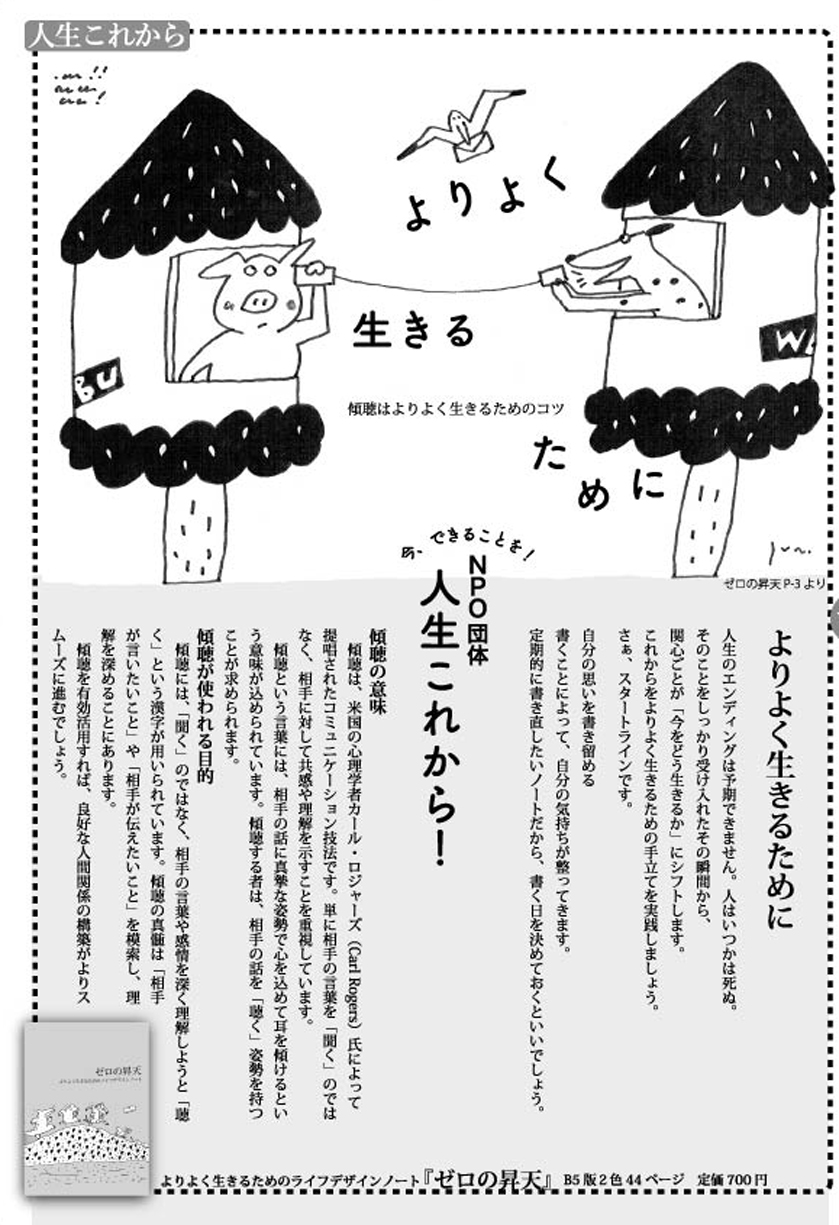 人生これから
よりよく
生きる
ために
傾聴はよりよく生きるためのコツ
BU
ゼロの昇天 P-3 より
よりよく生きるために
人生のエンディングは予期できません。人はいつかは死ぬ。
そのことをしっかり受け入れたその瞬間から、
関心ごとが「今をどう生きるか」にシフトします。
これからをよりよく生きるための手立てを実践しましょう。
さぁ、スタートラインです。
自分の思いを書き留める
書くことによって、自分の気持ちが整ってきます。
定期的に書き直したいノートだから、書く日を決めておくといいでしょう。
できることを!
NPO団体
人生これから!
傾聴の意味
傾聴は、米国の心理学者カール・ロジャーズ(Carl Rogers)氏によって
提唱されたコミュニケーション技法です。単に相手の言葉を「聞く」のでは
なく、相手に対して共感や理解を示すことを重視しています。
傾聴という言葉には、相手の話に真摯な姿勢で心を込めて耳を傾けるとい
う意味が込められています。傾聴する者は、相手の話を「聴く」姿勢を持つ
ことが求められます。
傾聴が使われる目的
傾聴には、「聞く」のではなく、相手の言葉や感情を深く理解しようと「聴
く」という漢字が用いられています。傾聴の真髄は「相手
が言いたいこと」や「相手が伝えたいこと」を模索し、理
解を深めることにあります。
傾聴を有効活用すれば、良好な人間関係の構築がよりス
ムーズに進むでしょう。
ゼロの昇天
よりよく生きるためのライフデザインノート『ゼロの昇天』 B5版2色44ページ 定価700円